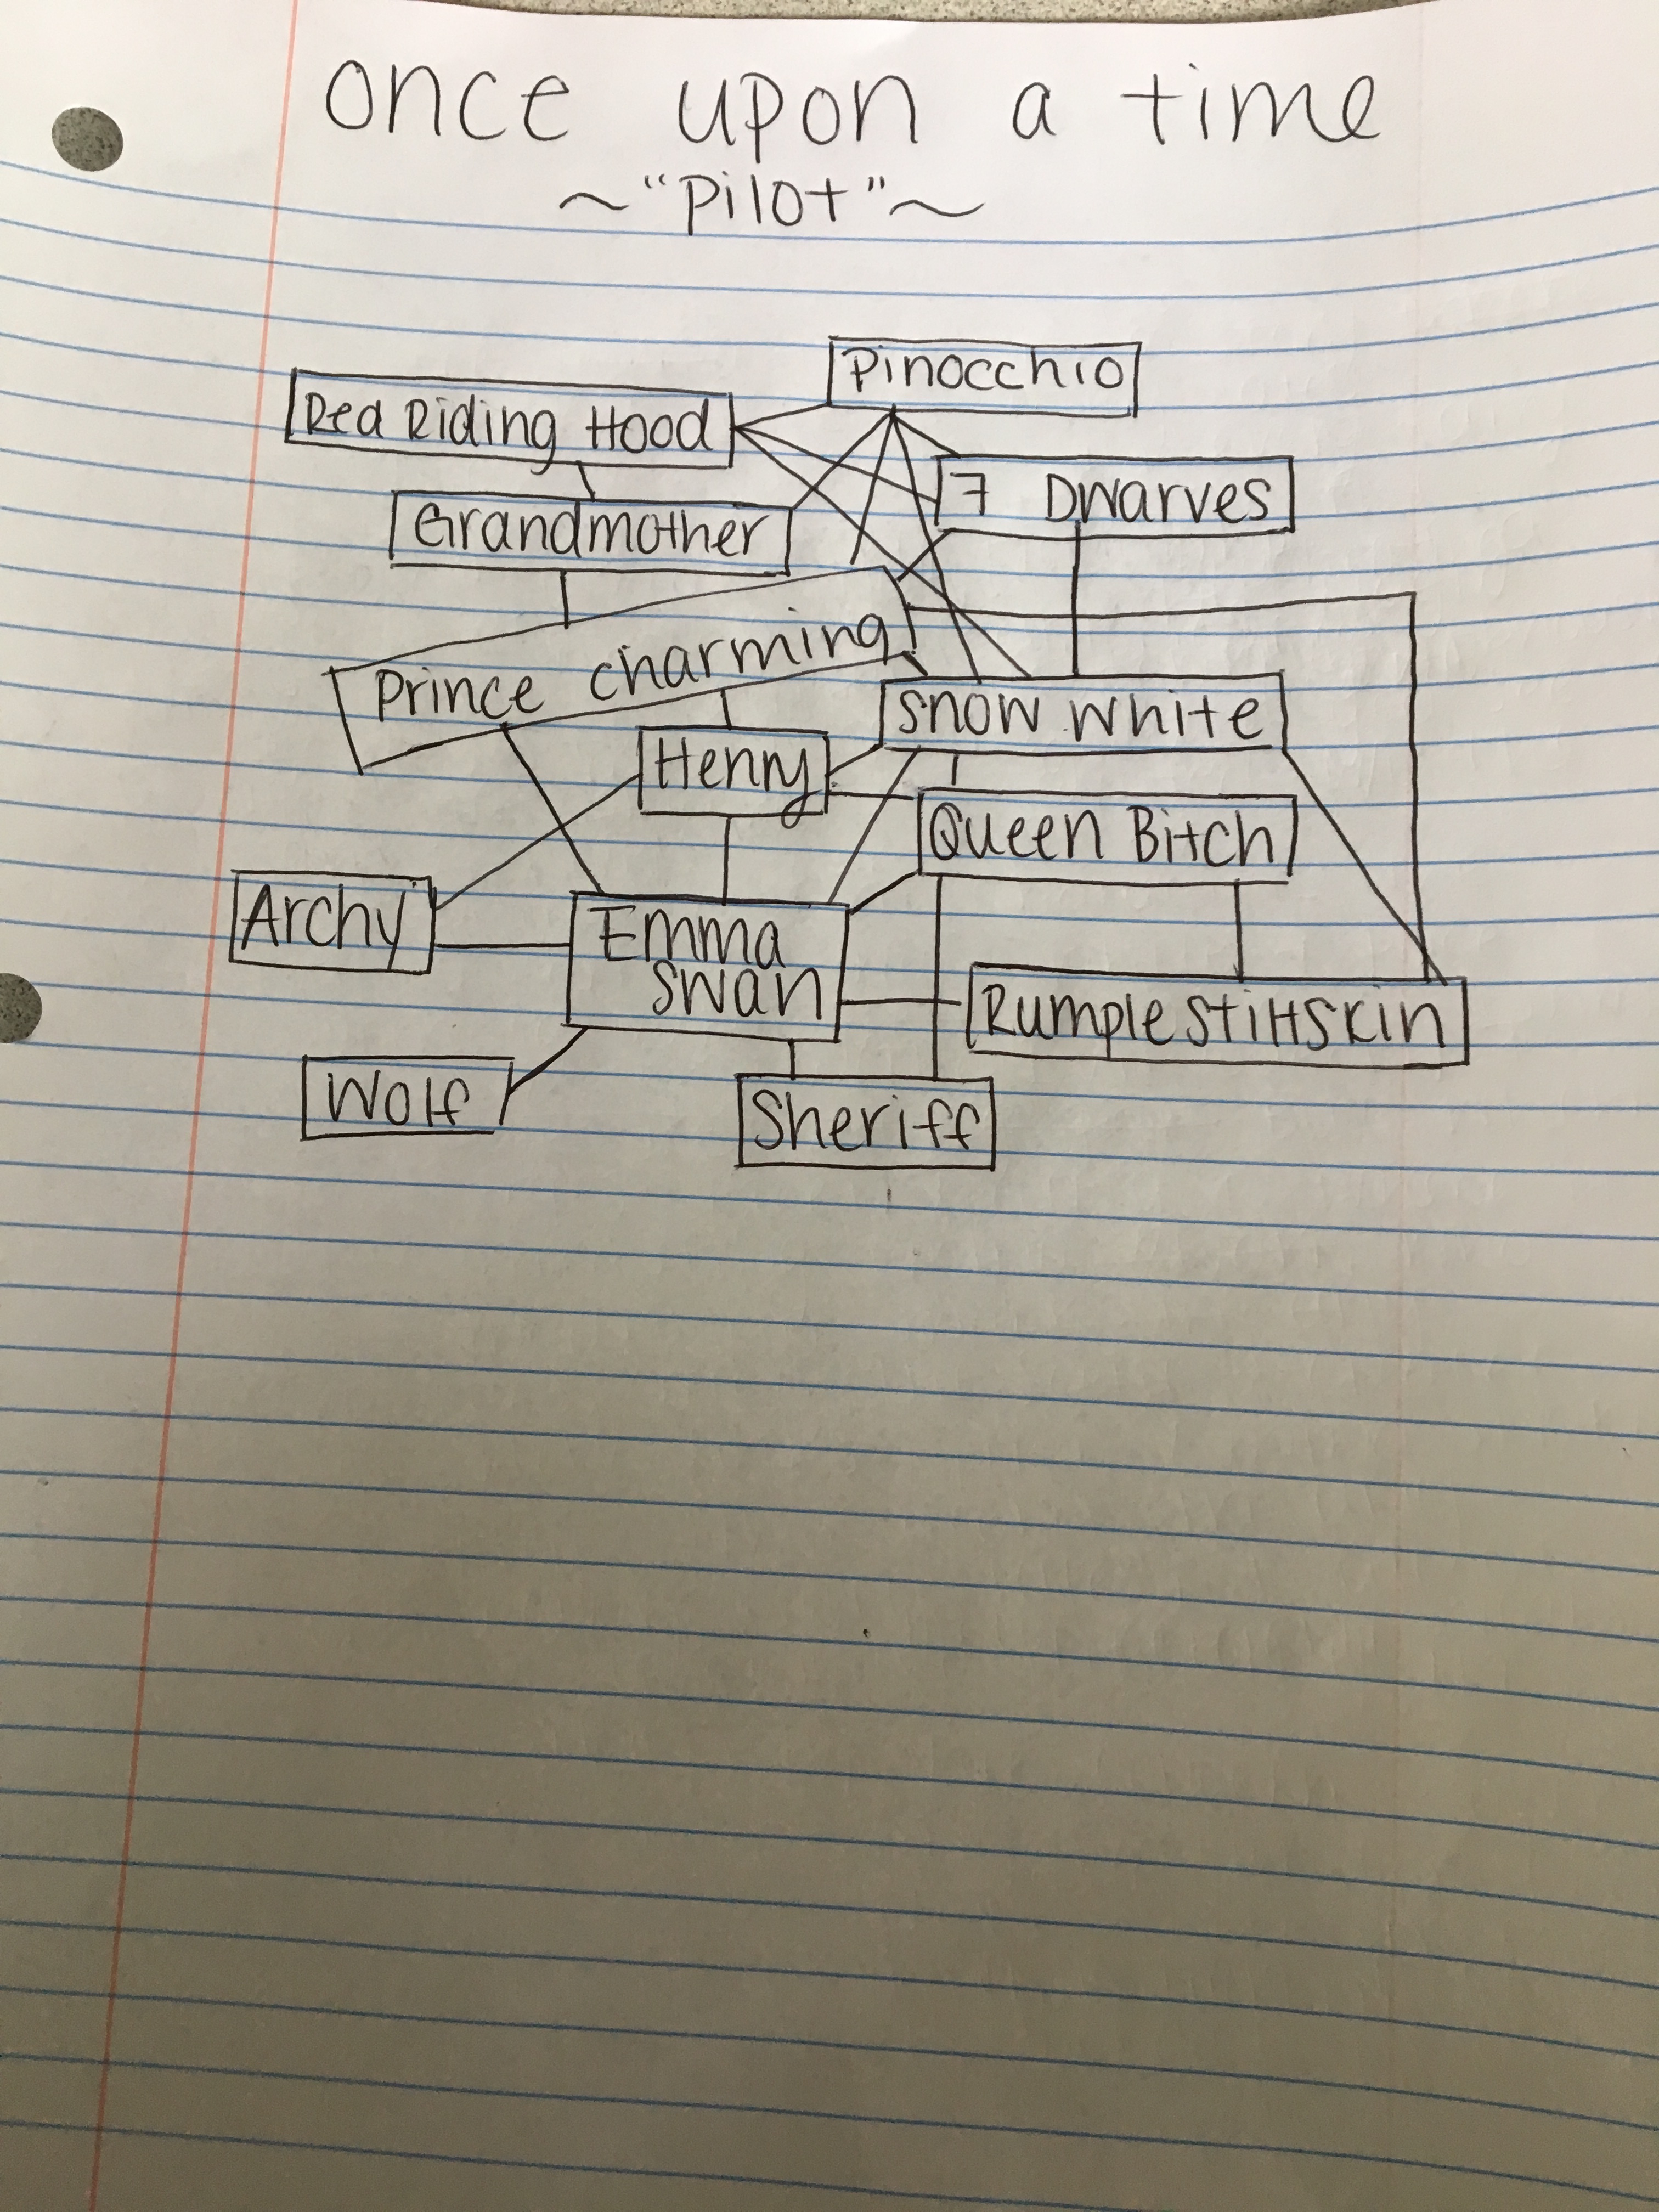 once upon a time
~"Pilot"~
Pinocchio
Red Riding Hood
7 Dwarves
Grandmother
Prince charming
Snow White
Henry
Queen Bitch
Archy
Emma
Swan
Rumplestiltskin
Wolf
Sheriff